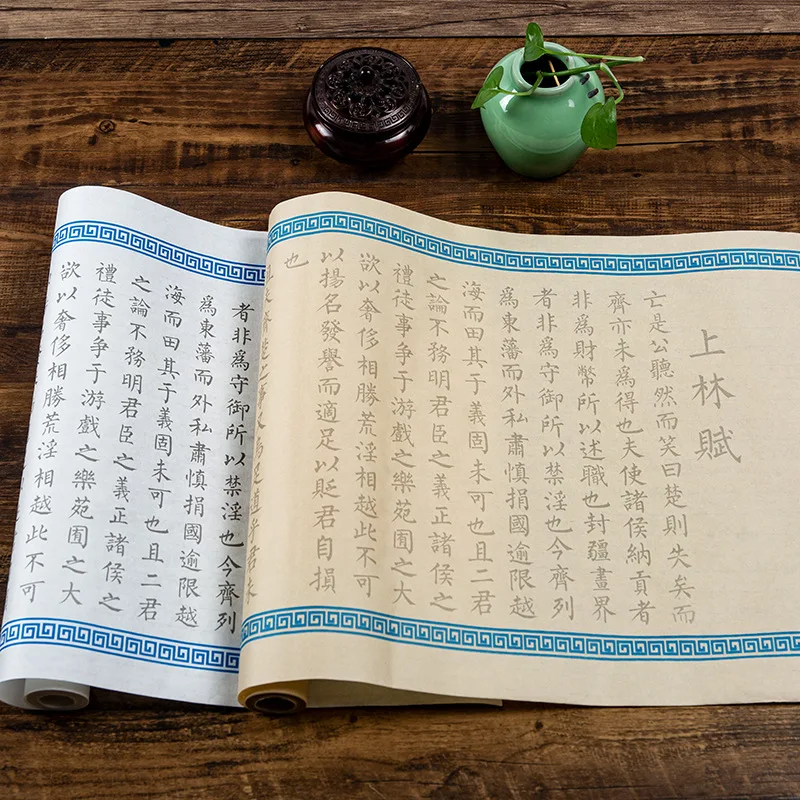 上林賦
亡是公聽然而笑曰楚則失矣而
齊亦未爲得也夫使諸侯納貢者
非爲財幣所以述職也封疆畫界
者非爲守御所以禁淫也今齊列
爲東藩而外私肅慎捐國逾限越
海而田其于義固未可也且二君
之論不務明君臣之義正諸侯之
禮徒事爭于游戲之樂苑囿之大
欲以奢侈相勝荒淫相越此不可
以揚名發譽而適足以貶君自損
也
者非爲守御所以禁淫也今齊列
爲東藩而外私肅慎捐國逾限越
海而田其于義固未可也且二君
之論不務明君臣之義正諸侯之
禮徒事爭于游戲之樂苑囿之大
欲以奢侈相勝荒淫相越此不可